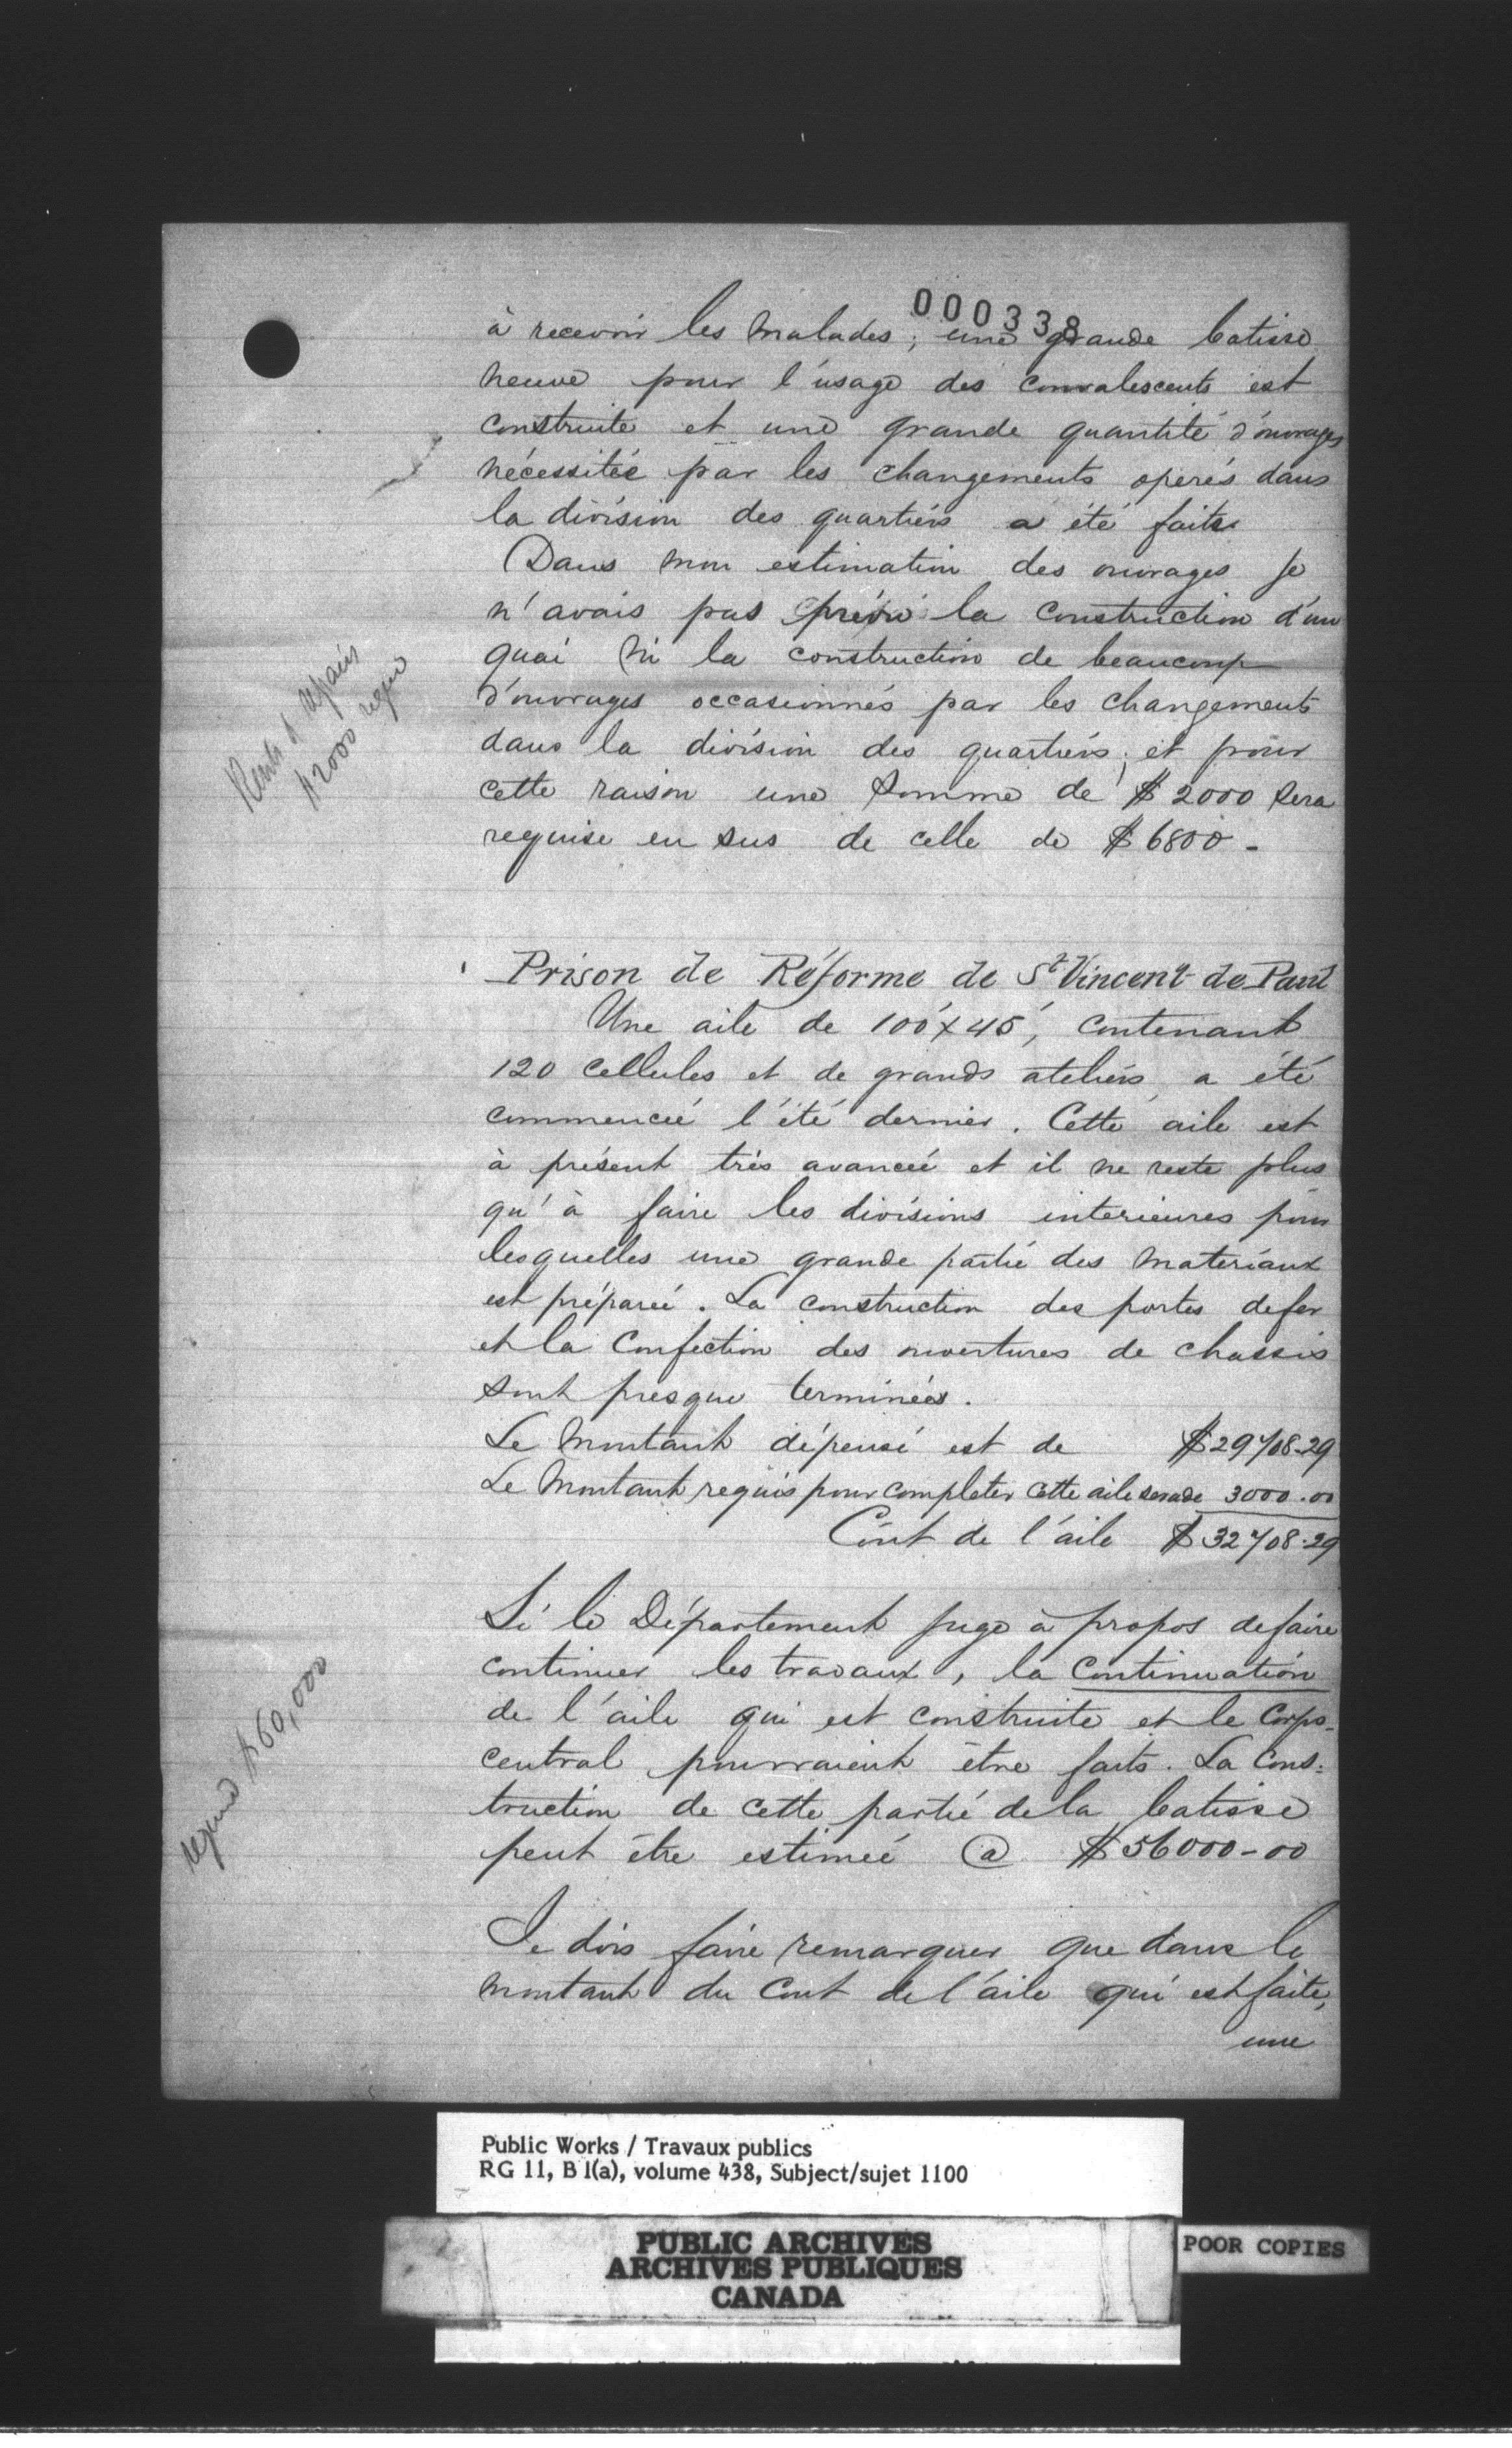 000338
à recevoir les malades ; une grande batisse
neuve pour l'usage des convalescents est
construite et une grande quantité d'ouvrages
nécessitée par les changements operés dans
la division des quartiers a été faite
Dans mon estimation des ouvrages je
n'avais pas prévu la construction d'un
quai ni la construction de beaucoup
d'ouvrages occasionnés par les changements
dans la division des quartiers ; et pour
cette raison une somme de $2000 sera
requise en sus de celle de $6800 -
Rents & repairs
$2000 requd
Prison de Réforme de St Vincent de Paul
Une aile de 100'x45', contenant
120 cellules et de grands ateliers, a été
commencée l'été dernier. Cette aile est
à présent très avancée et il ne reste plus
qu'à faire les divisions interieures pour
lesquelles une grande partie des materiaux
est préparée. La construction des portes de fer
et la confection des ouvertures de chassis
sont presque terminées.
Le montant dépensé est de $29708-29
Le montant requis pour completer cette aile sera de 3000.00
Cout de l'aile $32708.29
Si le Département juge à propos de faire
continuer les travaux, la continuation
de l'aile qui est construite et le corps
central pourraient être faits. La cons:
truction de cette partie de la batisse
peut être estimée @ $56000-00
requd $60,000
Je dois faire remarquer que dans le
montant du cout de l'aile qui est faite,
une
Public Works / Travaux publics
RG 11, B 1(a), volume 438, Subject/sujet 1100
PUBLIC ARCHIVES
ARCHIVES PUBLIQUES
CANADA
POOR COPIES